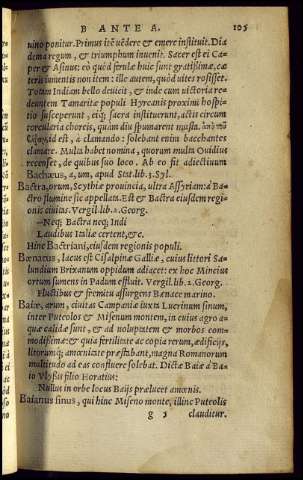 B ANTE A. 105
uino ponitur. Primus itē uēdere & emere instituit. Dia
dema regum, & triumphum inuenit. Sacer est ei Ca-
per & Asinus: eò quòd ferulæ huic sunt gratissimæ, cæ
teris iumentis non item: ille autem, quòd uites rosisset.
Totam Indiam bello deuicit, & inde cum uictoria re-
deuntem Tamaritæ populi Hyrcanis proximi hospi-
tio susceperunt, eiq́; sacra instituerunt, actis circum
torcularia choreis, quàm diu spumarent musta.
id est, à clamando: solebant enim bacchantes
clamare. Multa habet nomina, quorum multa Ouidius
recenset, de quibus suo loco. Ab eo fit adiectiuum
Bachæus, a, um, apud Stat. lib. 3. Syl.
Bactra, orum, Scythiæ prouincia, ultra Assyriam: à Ba-
ctro flumine sic appellata. Est & Bactra eiusdem regi-
onis ciuitas. Vergil. lib. 2. Georg.
—Neq; Bactra neq; Indi
Laudibus Italiæ certent, &c.
Hinc Bactriani, eiusdem regionis populi.
Benacus, lacus est Cisalpinæ Galliæ, cuius littori Sa-
lundium Brixanum oppidum adiacet: ex hoc Mincius
ortum sumens in Padum effluit. Vergil. lib. 2. Georg.
Fluctibus & fremitu assurgens Benace marino.
Baiæ, arum, ciuitas Campaniæ iuxta Lucrinum sinum,
inter Puteolos & Misenum montem, in cuius agro a-
quæ calidæ sunt, & ad uoluptatem & morbos com-
modissimæ: & quia fertilitate ac copia rerum, ædificijs,
litorumq́; amœnitate præstabant, magna Romanorum
multitudo ad eas confluere solebat. Dictæ Baiæ à Ba-
io Vlyssis filio Horatius:
Nullus in orbe locus Baijs prælucet amœnis.
Baianus sinus, qui hinc Miseno monte, illinc Puteolis
g 3 clauditur.